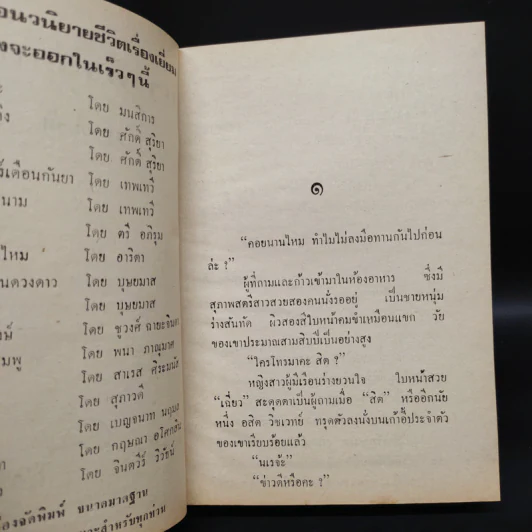 อนวนิยายชีวิตเรื่องเยี่ยม
งจะออกในเร็วๆนี้
โดย มนสิการ
โดย ศักดิ์ สุริยา
โดย ศักดิ์ สุริยา
ร์เดือนกันยา โดย เทพเทวี
นาม โดย เทพเทวี
โดย ตรี อภิรุม
ไหม โดย อาริตา
นดวงดาว โดย บุษยมาส
โดย บุษยมาส
โดย ชูวงศ์ ฉายะจินดา
โดย พนา ภาณุมาศ
โดย สาเรส ศิระมนัส
โดย สุภาวดี
โดย เบญจนาท
โดย กฤษณา อโศกสิน
โดย จินตวีร์ วิวัธน์
องจัดพิมพ์ ขนาดมาตฐาน
สำหรับทุกท่าน
๑
“คอยนานไหม ทำไมไม่ลงมือทานกันไปก่อน
ล่ะ ?”
ผู้ที่ถามและก้าวเข้ามาในห้องอาหาร ซึ่งมี
สุภาพสตรีสาวสวยสองคนนั่งรออยู่ เป็นชายหนุ่ม
ร่างสันทัด ผิวสองสีใบหน้าคมขำเหมือนแขก วัย
ของเขาประมาณสามสิบปีเป็นอย่างสูง
“ใครโทรมาคะ สิต ?”
หญิงสาวผู้มีเรือนร่างยวนใจ ใบหน้าสวย
“เฉี่ยว” สะดุดตาเป็นผู้ถามเมื่อ “สิต” หรืออีกนัย
หนึ่ง อสิต วิชเวทย์ ทรุดตัวลงนั่งบนเก้าอี้ประจำตัว
ของเขาเรียบร้อยแล้ว
“นเรจ้ะ”
“ข่าวดีหรือคะ ?”